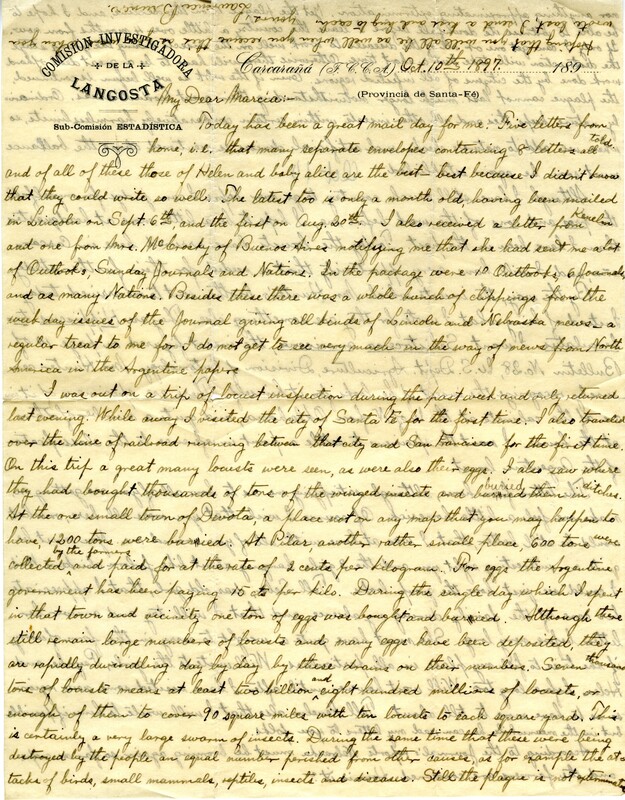 hoping that you will all be as well when you receive this as when you
wrote last I send a kiss and hug to each.
Yours,
Lawrence Bruner.
COMISION INVESTIGADORA
DE LA
LANGOSTA
Sub-Comisión ESTADÍSTICA
Carcarañá (F. C. C. A.) Oct. 10th 1897. 189
(Provincia de Santa-Fé)
My Dear Marcia:-
Today has been a great mail day for me. Five letters from
home, i.e. that many separate envelopes containing 8 letters all told
and of all of these those of Helen and baby alice are the best- best because I did n't know
that they could write so well. The latest too is only a month old, having been mailed
in Lincoln on Sept. 6th, and the first on Aug. 20th. I also received a letter from
and one from Mrs. McCrosky of Buenos Aires notifying me that she had sent me a lot
of Outlooks, Sunday Journals and Nations. In the package were 10 Outlooks, 6 Journals,
and as many Nations. Besides these there was a whole bunch of clippings from the
week day issues of the Journal giving all kinds of Lincoln and Nebraska news- a
regular treat to me for I do not get to see very much in the way of news from North
America in the Argentine papers
I was out on a trip of locust inspection during the past week and only returned
last evening. While away I visited the city of Santa Fe for the first time. I also traveled
over the line of railroad running between that city and San Francisco for the first time.
On this trip a great many locusts were seen, as were also their eggs. I also saw where
they had bought thousands of tons of the winged insects and buried them in ditches.
At the one small town of Devota, a place not on any map that you may happen to
have, 1200 tons were buried. At Pilar, another rather small place, 600 tons were
collected by the farmers and paid for at the rate of 2 cents per kilogram. For eggs the Argentine
government has been paying 15 cts per kilo. During the single day which I spent
in that town and vicinity one ton of eggs was bought and buried. Although there
still remain large numbers of locusts and many eggs have been deposited, they
are rapidly dwindling day by day by these drains on their numbers. Seven thousand
tons of locusts means at least two billion and eight hundred millions of locusts, or
enough of them to cover 90 square miles with ten locusts to each square yard. This
is certainly a very large swarm of insects. During the same time that these were being
destroyed by the people an equal number perished from other causes, as for example the at-
tacks of birds, small mammals, reptiles, insects and diseases. Still the plague is not